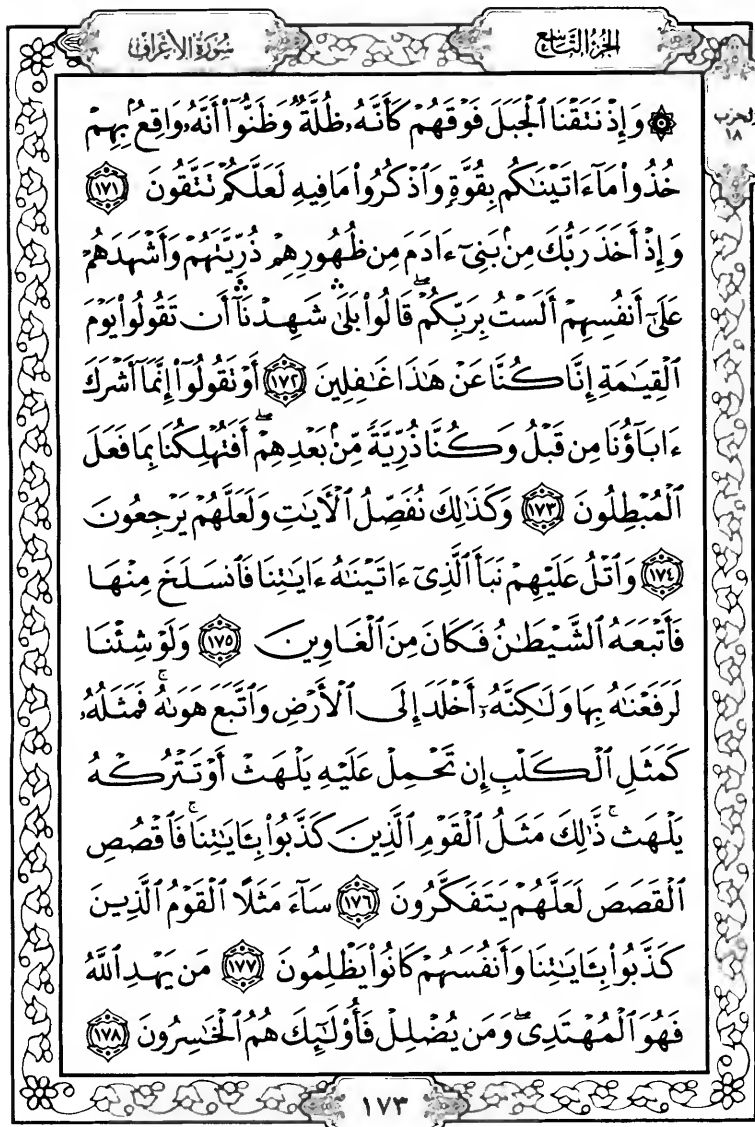 الجزء التاسع
سورة الأعراف
الحزب
١٨
۞ وَإِذْ نَتَقْنَا ٱلْجَبَلَ فَوْقَهُمْ كَأَنَّهُۥ ظُلَّةٌ وَظَنُّوٓا۟ أَنَّهُۥ وَاقِعٌۢ بِهِمْ
خُذُوا۟ مَآ ءَاتَيْنَٰكُم بِقُوَّةٍ وَٱذْكُرُوا۟ مَا فِيهِ لَعَلَّكُمْ تَتَّقُونَ ١٧١
وَإِذْ أَخَذَ رَبُّكَ مِنۢ بَنِىٓ ءَادَمَ مِن ظُهُورِهِمْ ذُرِّيَّتَهُمْ وَأَشْهَدَهُمْ
عَلَىٰٓ أَنفُسِهِمْ أَلَسْتُ بِرَبِّكُمْ ۖ قَالُوا۟ بَلَىٰ ۛ شَهِدْنَآ ۛ أَن تَقُولُوا۟ يَوْمَ
ٱلْقِيَٰمَةِ إِنَّا كُنَّا عَنْ هَٰذَا غَٰفِلِينَ ١٧٢ أَوْ تَقُولُوٓا۟ إِنَّمَآ أَشْرَكَ
ءَابَآؤُنَا مِن قَبْلُ وَكُنَّا ذُرِّيَّةً مِّنۢ بَعْدِهِمْ ۖ أَفَتُهْلِكُنَا بِمَا فَعَلَ
ٱلْمُبْطِلُونَ ١٧٣ وَكَذَٰلِكَ نُفَصِّلُ ٱلْـَٔايَٰتِ وَلَعَلَّهُمْ يَرْجِعُونَ
١٧٤ وَٱتْلُ عَلَيْهِمْ نَبَأَ ٱلَّذِىٓ ءَاتَيْنَٰهُ ءَايَٰتِنَا فَٱنسَلَخَ مِنْهَا
فَأَتْبَعَهُ ٱلشَّيْطَٰنُ فَكَانَ مِنَ ٱلْغَاوِينَ ١٧٥ وَلَوْ شِئْنَا
لَرَفَعْنَٰهُ بِهَا وَلَٰكِنَّهُۥٓ أَخْلَدَ إِلَى ٱلْأَرْضِ وَٱتَّبَعَ هَوَىٰهُ ۚ فَمَثَلُهُۥ
كَمَثَلِ ٱلْكَلْبِ إِن تَحْمِلْ عَلَيْهِ يَلْهَثْ أَوْ تَتْرُكْهُ
يَلْهَث ۚ ذَّٰلِكَ مَثَلُ ٱلْقَوْمِ ٱلَّذِينَ كَذَّبُوا۟ بِـَٔايَٰتِنَا ۚ فَٱقْصُصِ
ٱلْقَصَصَ لَعَلَّهُمْ يَتَفَكَّرُونَ ١٧٦ سَآءَ مَثَلًا ٱلْقَوْمُ ٱلَّذِينَ
كَذَّبُوا۟ بِـَٔايَٰتِنَا وَأَنفُسَهُمْ كَانُوا۟ يَظْلِمُونَ ١٧٧ مَن يَهْدِ ٱللَّهُ
فَهُوَ ٱلْمُهْتَدِى ۖ وَمَن يُضْلِلْ فَأُو۟لَٰٓئِكَ هُمُ ٱلْخَٰسِرُونَ ١٧٨
١٧٣